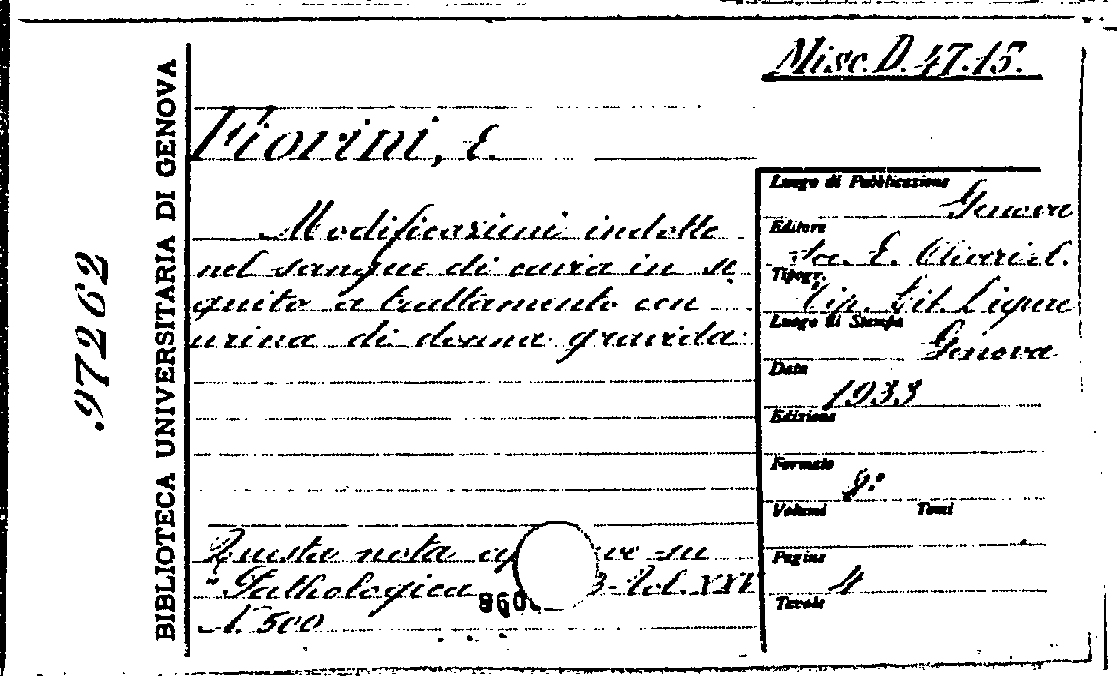 Misc. D. 47.15.
Fiorini, E.
Modificazioni indotte
nel sangue di cavia in se
guito a trattamento con
urina di donna gravida
Questa nota su
"Pathologica 3 - Vol. XXV
N. 500
Luogo di Pubblicazione
Genova
Editore
Soc. E. Olivieri
Tipogr.
Tip. Lit. Ligure
Luogo di Stampa
Genova
Data
1933
Edizione
Formato
8°
Volumi Tomi
Pagine
4
Tavole
BIBLIOTECA UNIVERSITARIA DI GENOVA
.97262